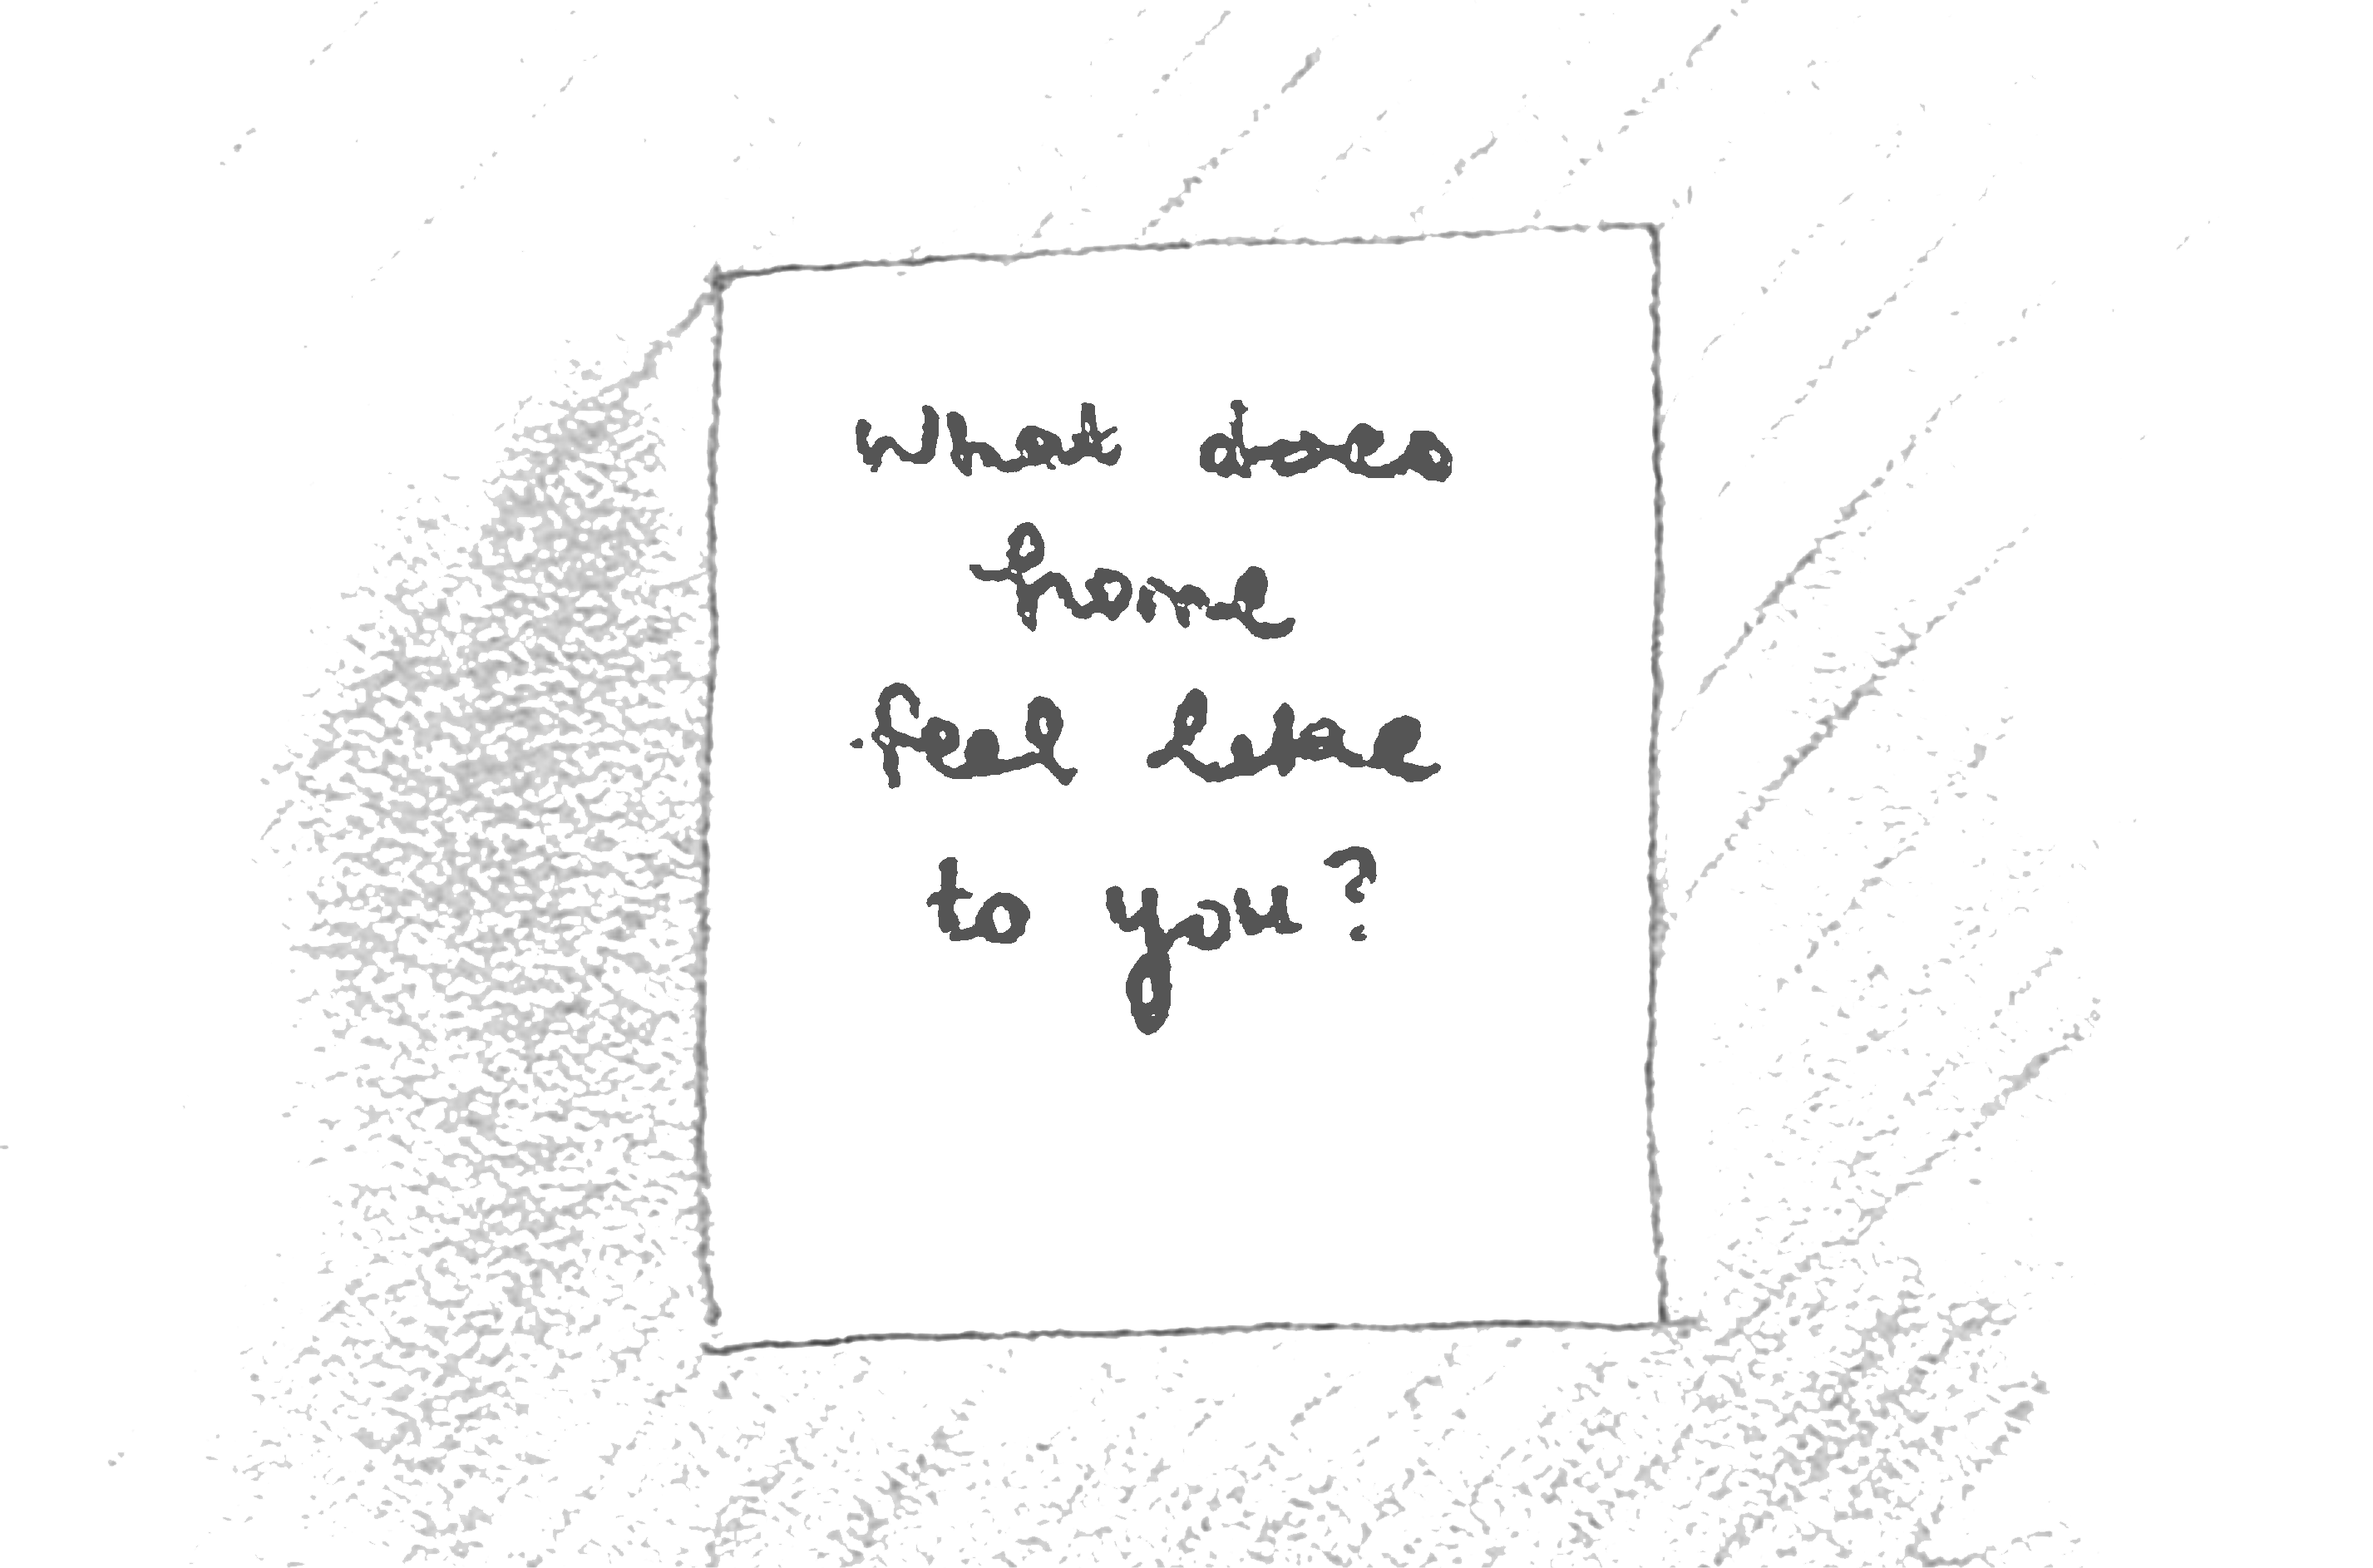 what does
home
feel like
to you?